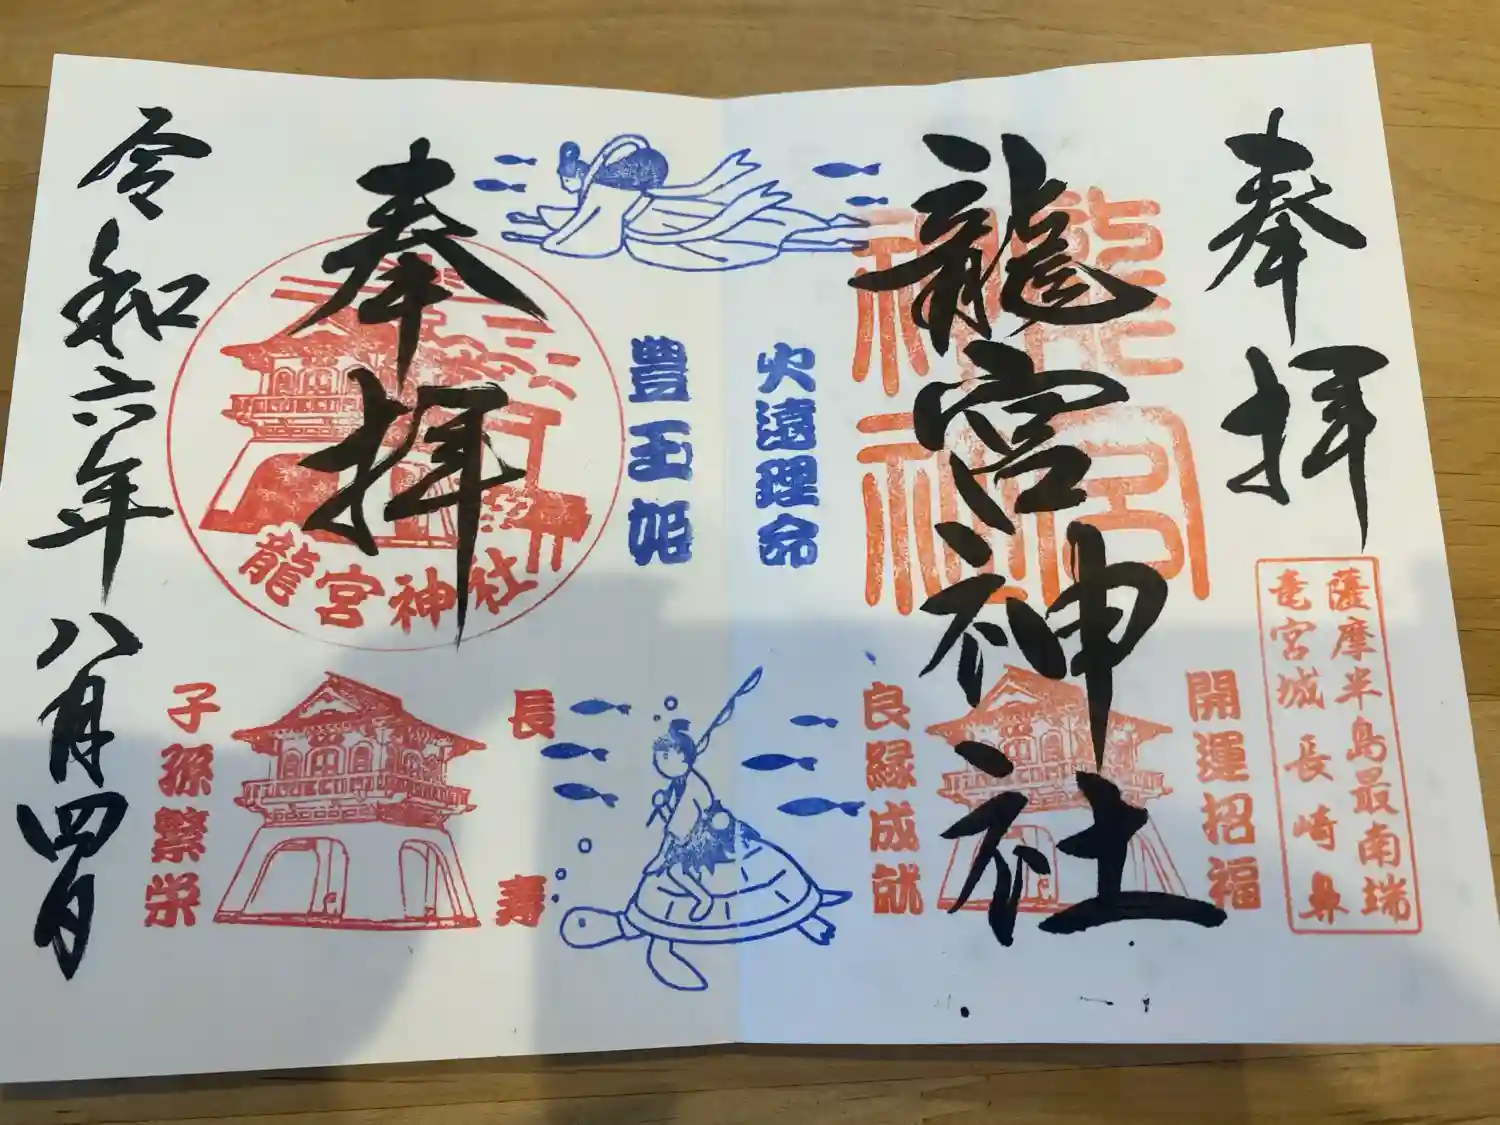 奉拝
龍宮神社
龍宮
神社
薩摩半島最南端
竜宮城 長崎鼻
開運招福
良縁成就
火遠理命
豊玉姫
奉拝
龍宮神社
長寿
子孫繁栄
令和六年八月四日